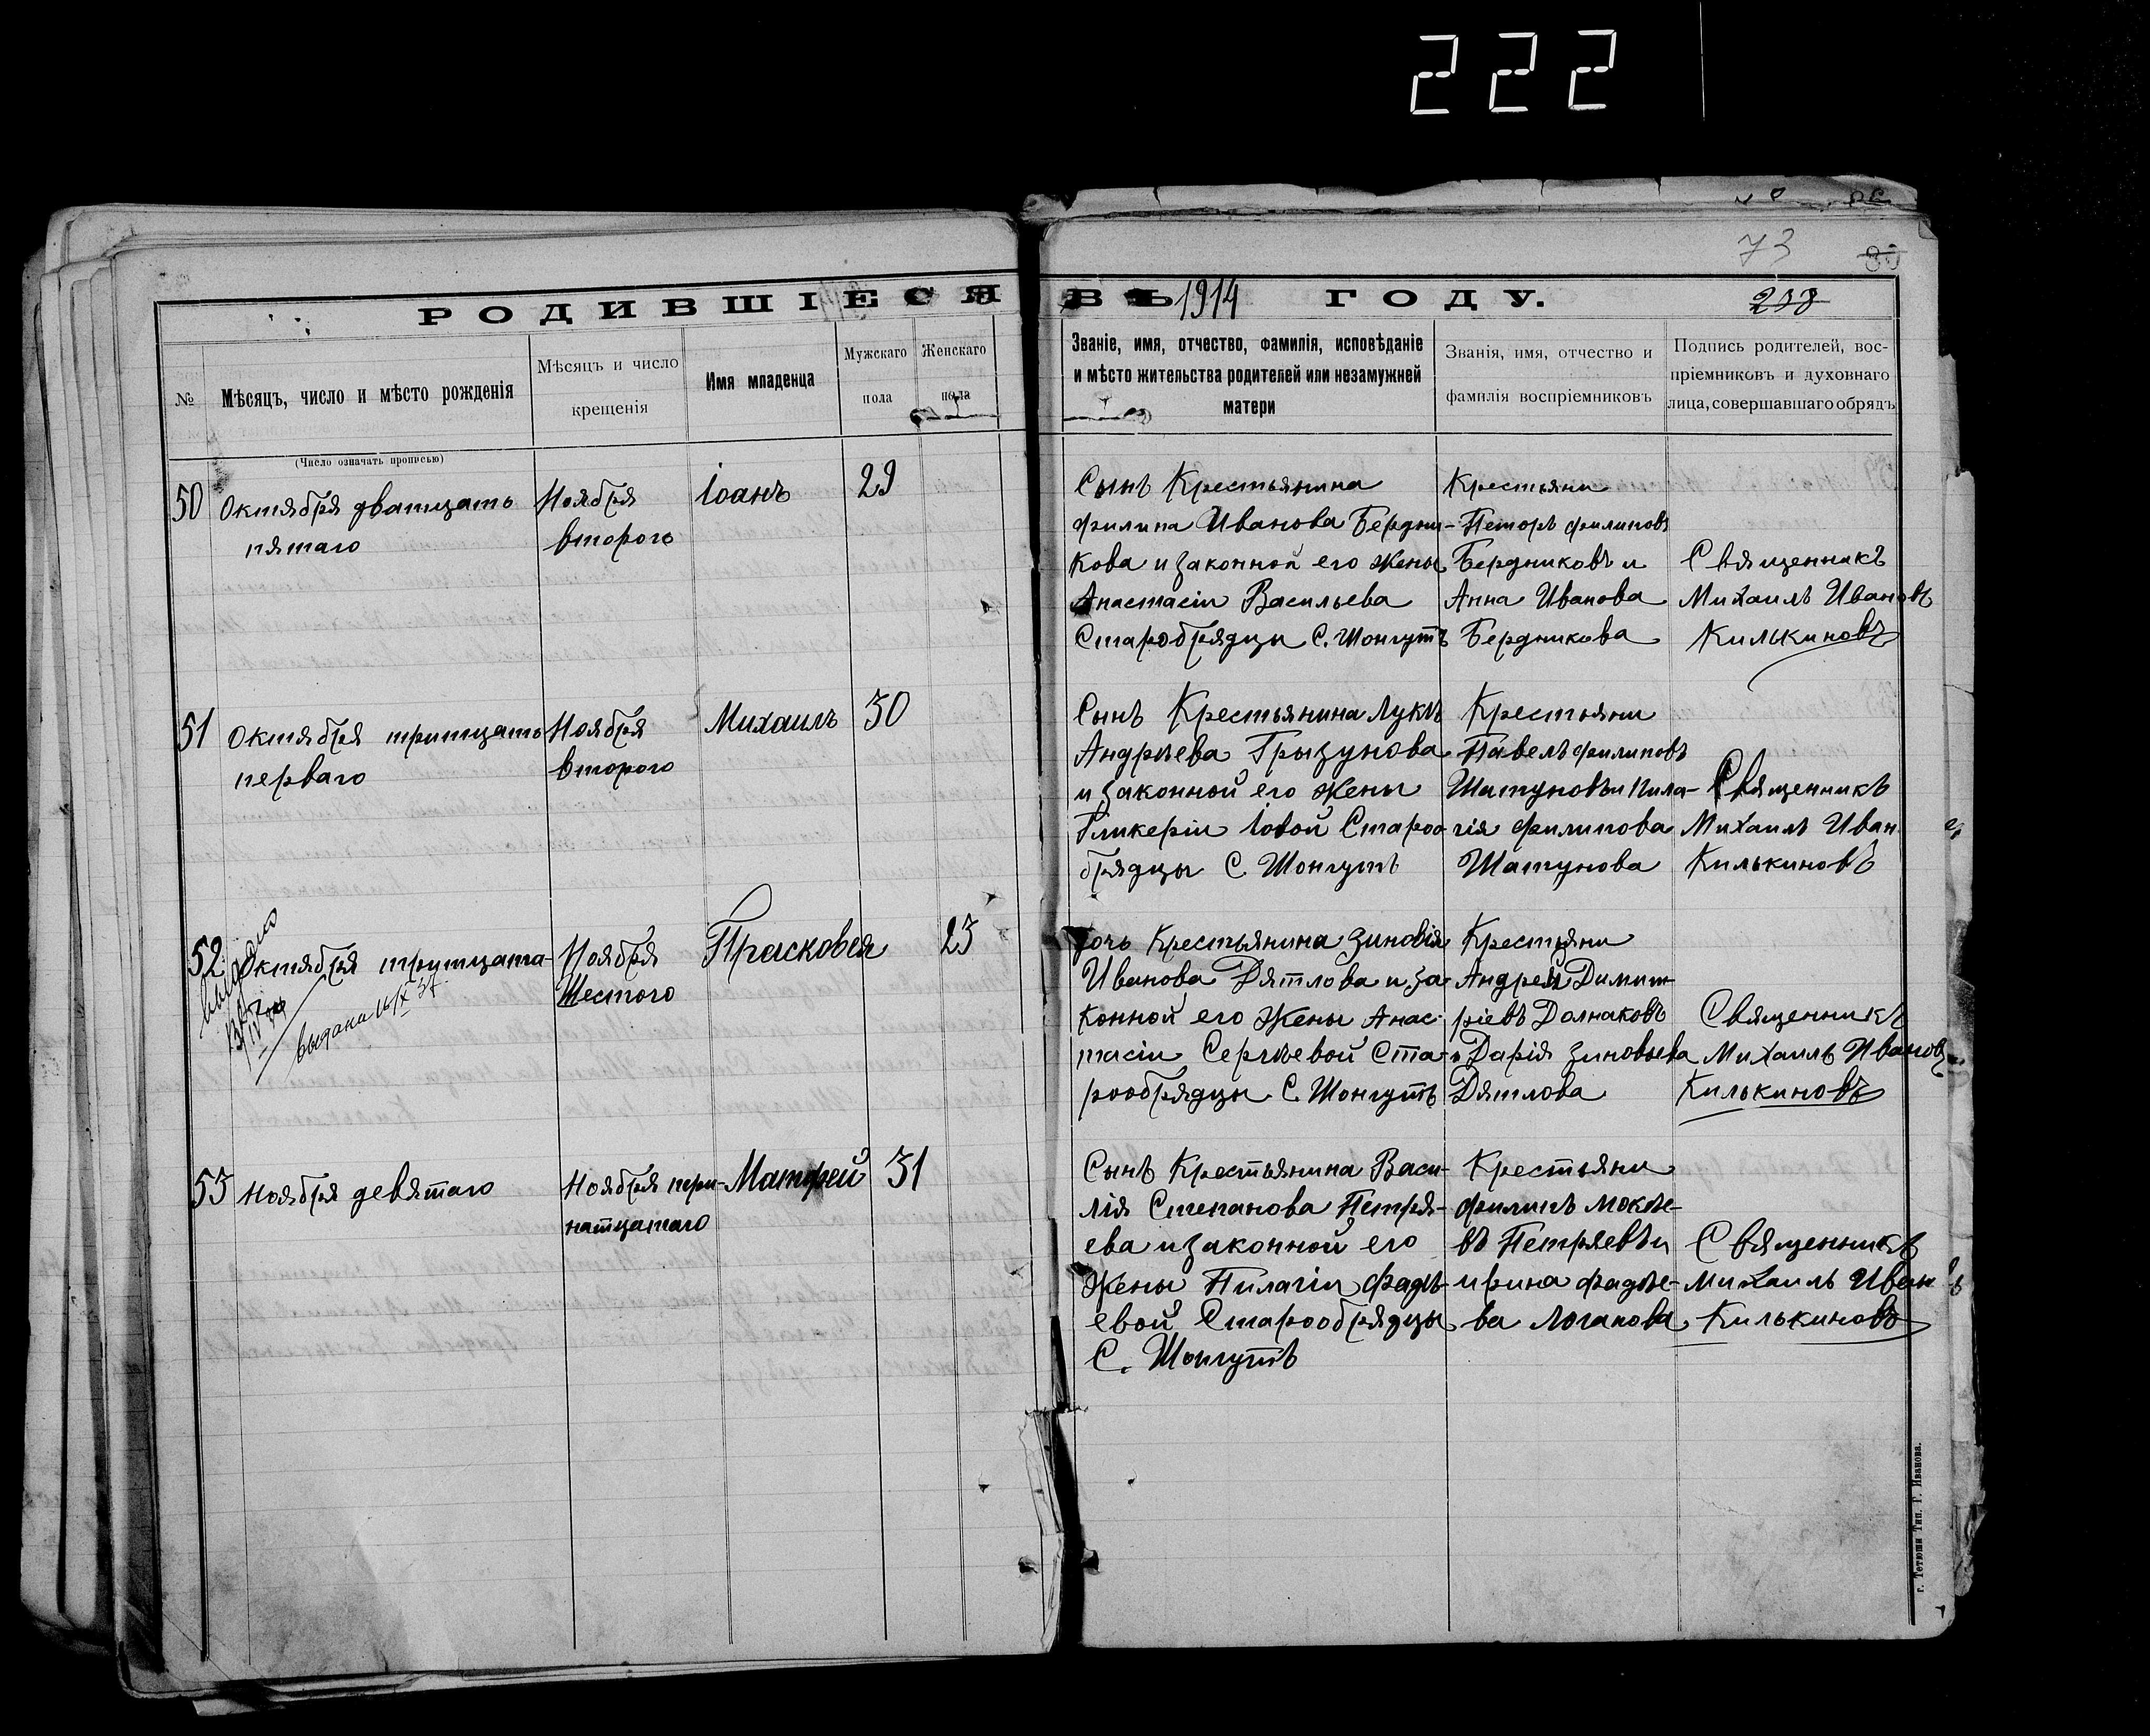 222
73
80
238
РОДИВШІЕСЯ ВЪ 1914 ГОДУ.
№
Мѣсяцъ, число и мѣсто рожденія
(Число означать прописью)
Мѣсяцъ и число
крещенія
Имя младенца
Мужскаго
пола
Женскаго
пола
Званіе, имя, отчество, фамилія, исповѣданіе
и мѣсто жительства родителей или незамужней
матери
Званія, имя, отчество и
фамилія воспріемниковъ
Подпись родителей, вос-
пріемниковъ и духовнаго
лица, совершавшаго обрядъ
50
Октября дватцать
пятаго
Ноября
второго
Іоанъ
29
Сынъ Крестьянина
Филипа Иванова Бердни-
кова и законной его жены
Анастасіи Васильева
Старобрядцы С. Шонгутъ
Крестьяни
Петоръ Филиповъ
Бердниковъ и
Анна Иванова
Бердникова
Священникъ
Михаилъ Ивановъ
Килькиновъ
51
Октября тритцать
перваго
Ноября
второго
Михаилъ
30
Сынъ Крестьянина Лукѣ
Андрѣева Грызунова
и законной его жены
Гликеріи Іовой Староо-
брядцы С Шонгутъ
Крестьяни
Павелъ Филиповъ
Шатуновъ и Пила-
гія Филипова
Шатунова
Священникъ
Михаилъ Иван
Килькиновъ
52
Октября тритцата-
выдана 16/X 37
Ноября
Шестого
Прасковея
23
Дочь Крестьянина Зиновія
Иванова Дятлова и за
конной его Жены Анас-
тасіи Сергѣевой Ста-
рообрядцы С. Шонгутъ
Крестьяни
Андрей Димит-
ріевъ Долнаковъ
и Дарія Зиновьева
Дятлова
Священникъ
Михаилъ Ивановъ
Килькиновъ
53
Ноября девятаго
Ноября три-
натцатаго
Матфей
31
Сынъ Крестьянина Васи-
лія Степанова Петря-
ева и законной его
Жены Пилагіи Фадѣ-
евой Старообрядцы
С. Шонгутъ
Крестьяни
Филипъ Мокѣе-
въ Петряевъ и
Ирина Фадѣе-
ва Логанова
Священникъ
Михаилъ Иван
Килькиновъ
г. Тетюши Тип. Г. Иванова.